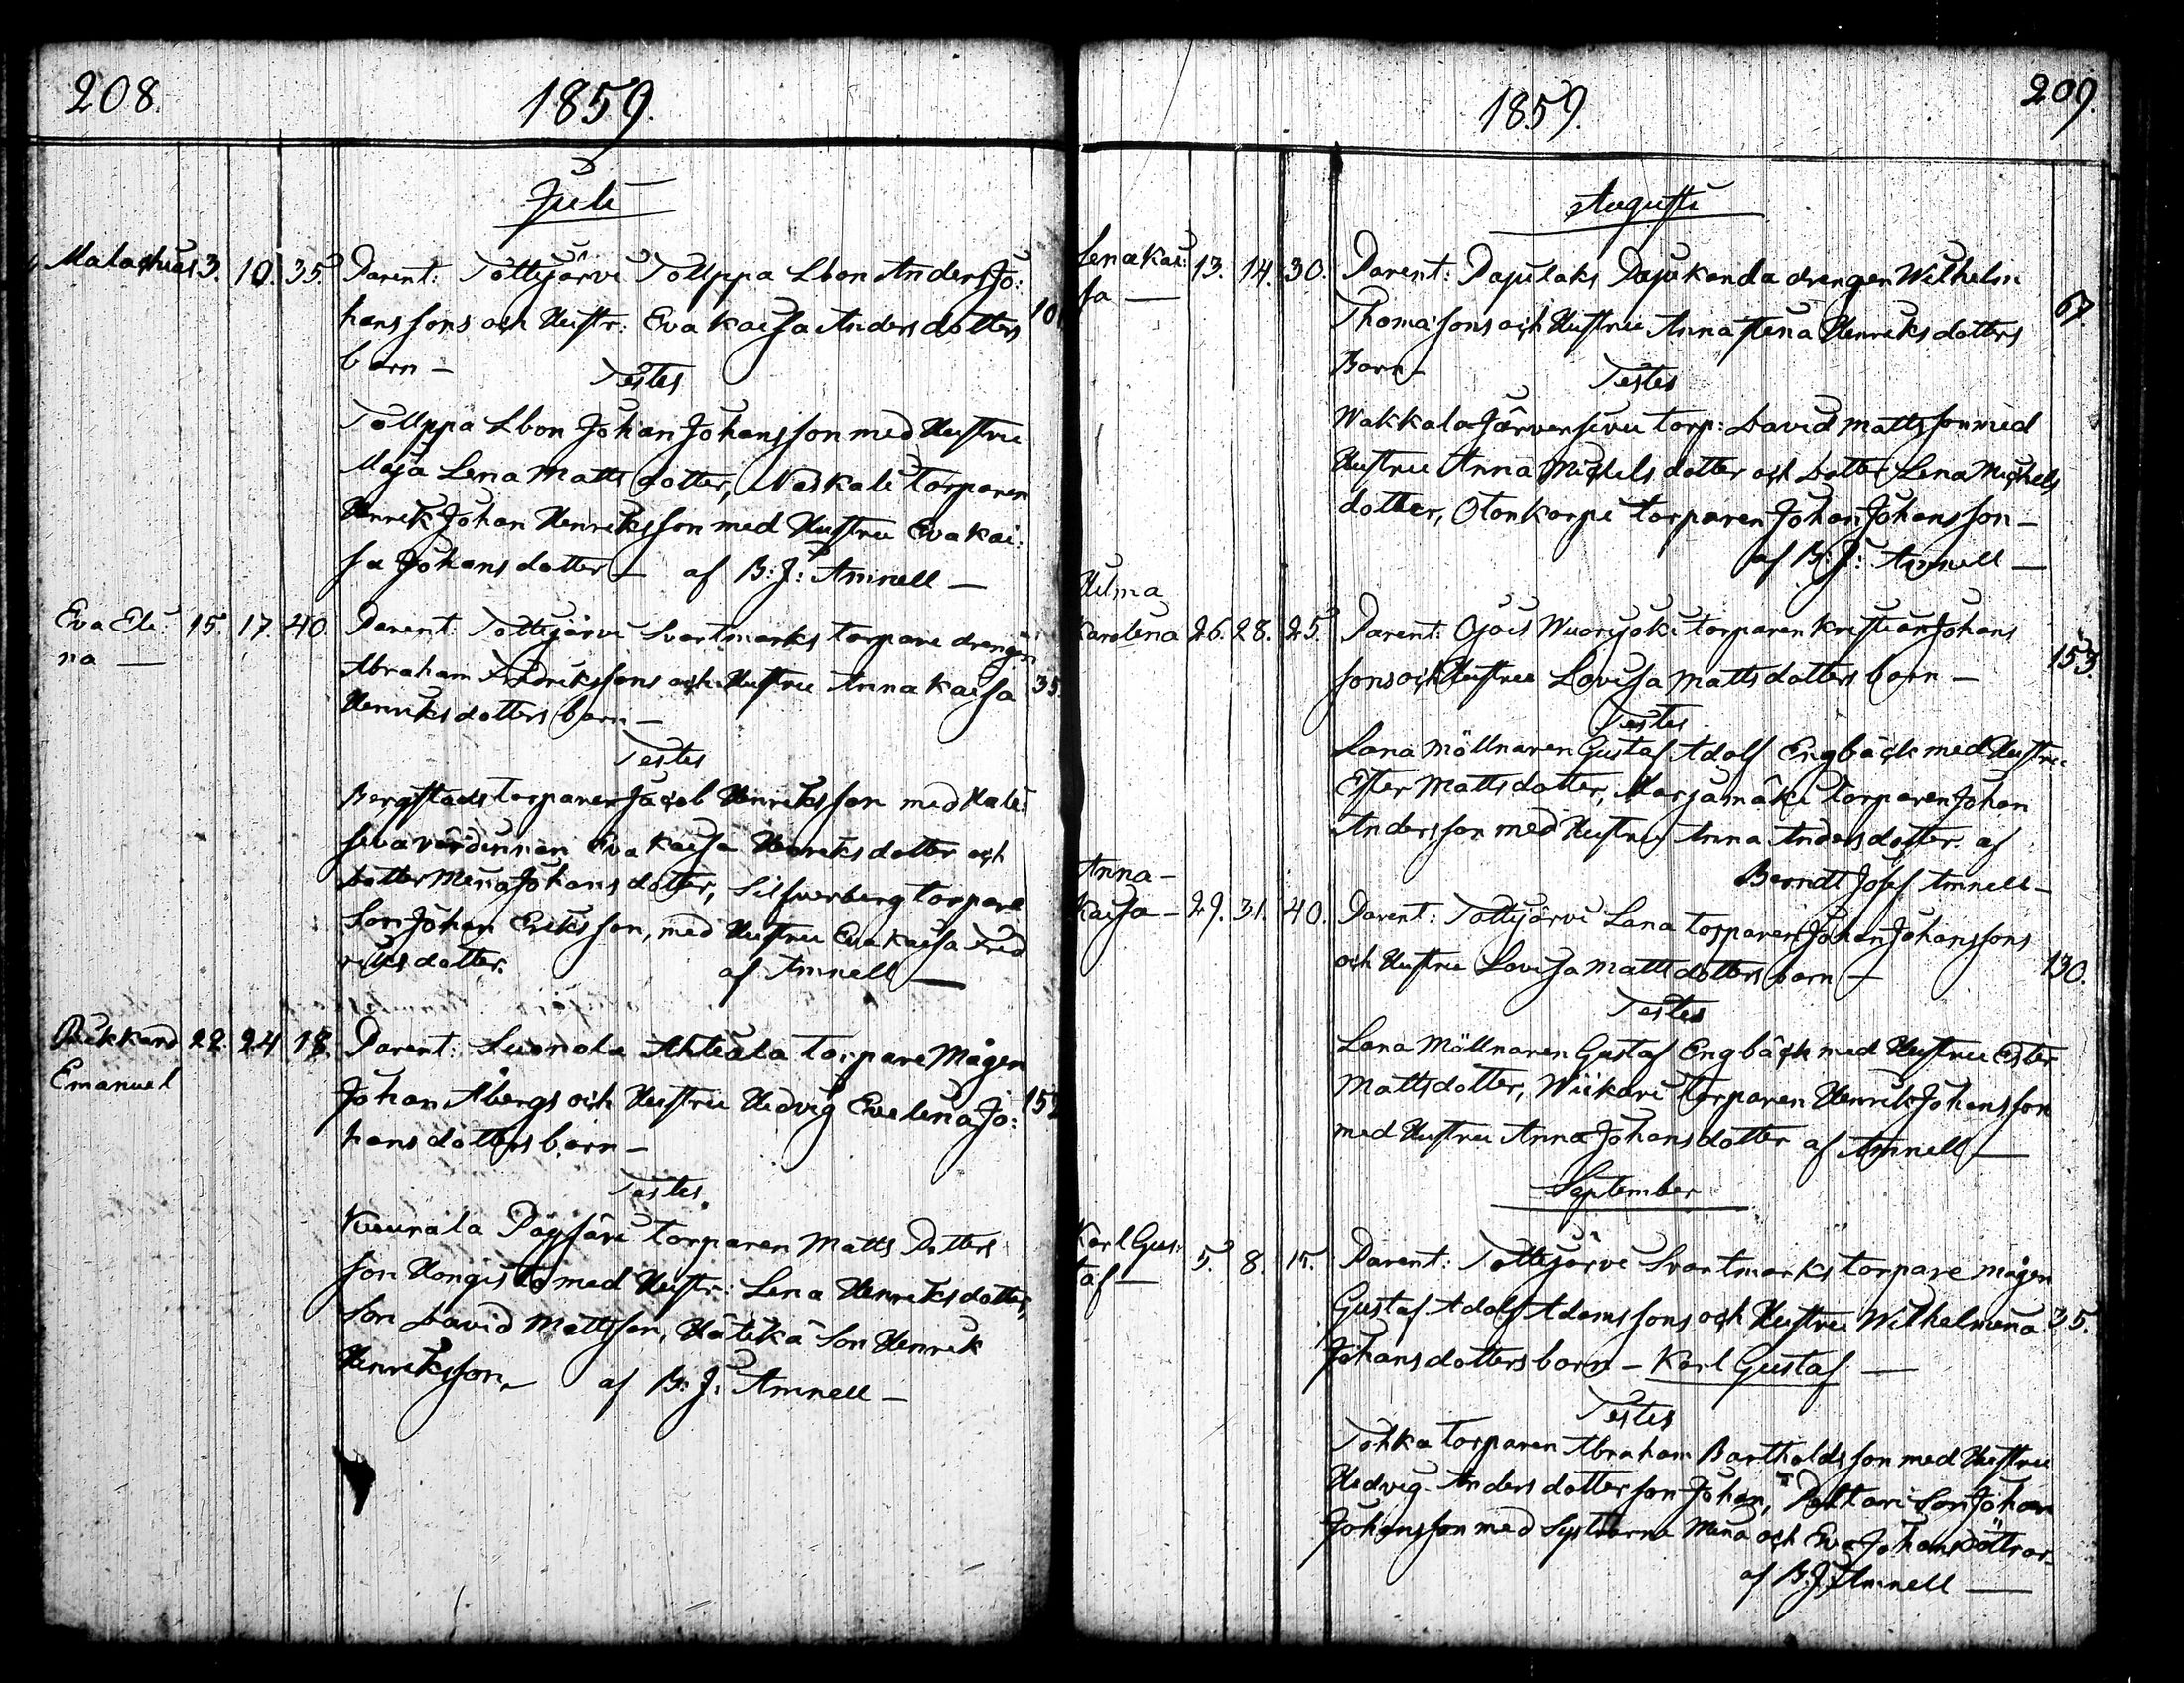 208.
1859.
Juli
Malachias 3. 10. 35. Parent: Tottijärvi Tolppa Lbon Anders Jo:
hanssons och Hustr: Eva Kaisa Andersdotters 10
barn –
Testes
Tolppa Lbon Johan Johansson med Hustru
Maja Lena Mattsdotter, Naskali torparen
Henrik Johan Henriksson med Hustru Eva Kai:
sa Johansdotter – af B: J: Amnell –
Eva Eli: 15. 17. 40. Parent: Tottijärvi Svartmarks torpare drengen
na — Abraham Fredrikssons och Hustru Anna Kaisa 35.
Henriksdotters barn –
Testes
Bergstads torparen Jacob Henriksson med
värdinnan Eva Kaisa Henriksdotter och
dotter Mina Johansdotter, Silfverberg torpare
Son Johan Eriksson, med Hustru Eva Kaisa Fred
riksdotter. af Amnell —
Rikkard 22. 24 18. Parent: Suonola Ahtiala torpare Mågen
Emanuel
Johan Åbergs och Hustru Hedvig Evelina Jo: 152
hansdotters barn –
Testes.
Kuurala torparen Matts
son Hongisto med Hustr: Lena Henriksdotter,
Son David Mattsson, Hätikä Son Henrik
Henriksson, – af B: J: Amnell –
1859.
209.
Augusti
Lena Kai: 13. 14. 30. Parent: Pajulaks Pajukanda drengen Wilhelm
sa — Thomassons och Hustru Anna Stina Henriksdotters 67.
Barn –
Testes
Wakkala Järvensivu torp: David Mattsson med
Hustru Anna Michelsdotter och Dotter Lena Michels
dotter, Otonkorpi torparen Johan Johansson –
af B: J: Amnell —
Hilma
Karolina 26. 28. 25. Parent: Ojois Wuorijoki torparen Kristian Johans
sons och Hustru Lovisa Mattsdotters barn – 153.
Testes
Lana Möllnaren Gustaf Adolf Engbäck med Hustru
Ester Mattsdotter, Marjamäki torparen Johan
Andersson med Hustru Anna Andersdotter. af
Berndt Josef Amnell –
Anna –
Kaisa – 29. 31. 40. Parent: Tottijärvi Lana torparen Johan Johanssons
och Hustru Lovisa Mattsdotters barn – 130.
Testes
Lana Möllnaren Gustaf Engbäck med Hustru Ester
Mattsdotter, Wiikari torparen Henrik Johansson
med Hustru Anna Johansdotter af Amnell —
September
Karl Gus: 5. 8. 15. Parent: Tottijärvi Svartmarks torpare mågen
taf — Gustaf Adolf Adamssons och Hustru Wilhelmina 35.
Johansdotters barn – Karl Gustaf —
Testes
Tohka torparen Abraham Bartholdsson med Hustru
Hedvig Andersdotter son Johan, Peltari Son Johan
Johansson med Systrarne Mina och Eva Johansdöttrar –
af B: J: Amnell —